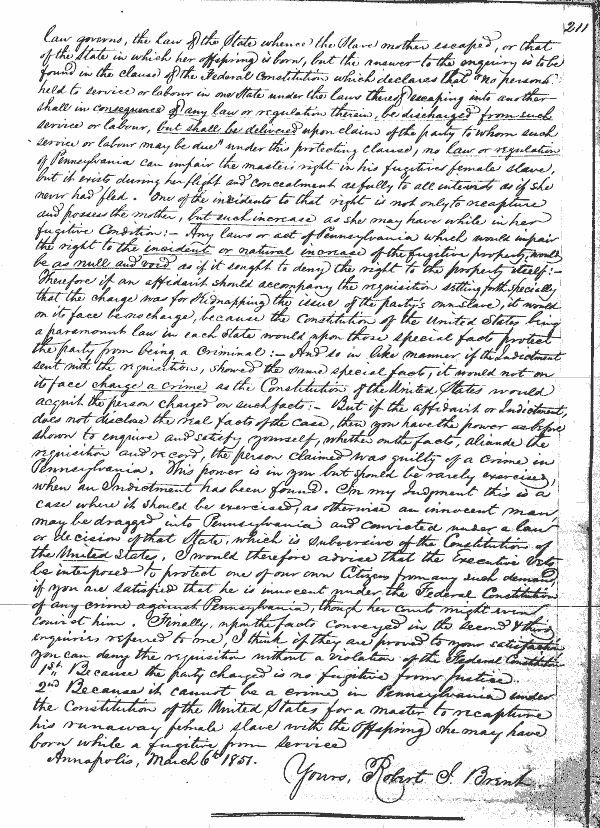 211
law governs, the law of the State whence the Slave mother escaped, or that
of the State in which her offspring is born, but the answer to the enquiry is to be
found in the clause of the Federal Constitution which declares that "no person
held to service or labour in one State under the laws thereof escaping into another
shall in consequence of any law or regulation therein, be discharged from such
service or labour, but shall be delivered upon claim of the party to whom such
service or labour may be due" under this protecting clause, no law or regulation
of Pennsylvania can impair the masters right in his fugitive female slave,
but it exists during her flight and concealment as fully to all interests as if she
never had fled. One of the incidents to that right is not only to recapture
and possess the mother, but such increase as she may have while in her
fugitive Condition:- Any laws or act of Pennsylvania which would impair
the right to the incident or natural increase of the fugitive property, would
be as null and void as if it sought to deny the right to the property itself:-
Therefore if an affidavit should accompany the requisition setting forth specially
that the charge was for Kidnapping the issue of the party's own slave, it would
on its face be no charge, because the Constitution of the United States being
a paramount law in each State would upon those special facts protect
the party from being a Criminal:- And so in like manner if the Indictment
sent with the requisition, showed the same special facts, it would not on
its face charge a crime as the Constitution of the United States would
acquit the person charged on such facts:- But if the affidavit or Indictment,
does not disclose the real facts of the case, then you have the power as before
shown to enquire and satisfy yourself, whether on the facts, aliunde the
requisition and record, the person claimed was guilty of a crime in
Pennsylvania. This power is in you but should be rarely exercised,
when an Indictment has been found. In my Judgment this is a
case where it should be exercised, as otherwise an innocent man
may be dragged into Pennsylvania and convicted under a law
or decision of that State, which is subversive of the Constitution of
the United States. I would therefore advise that the Executive Veto
be interposed to protect one of our own Citizens from any such demand
if you are satisfied that he is innocent under the Federal Constitution
of any crime against Pennsylvania, though her courts might even
convict him. Finally, upon the facts conveyed in the second & third
enquiries referred to me, I think if they are proved to your satisfaction
you can deny the requisition without a violation of the Federal Constitution
1st. Because the party charged is no fugitive from Justice.
2nd Because it cannot be a crime in Pennsylvania under
the Constitution of the United States for a master to recapture
his runaway female slave with the offspring she may have
born while a fugitive from service
Annapolis, March 6th 1851.
Yours, Robert J. Brent